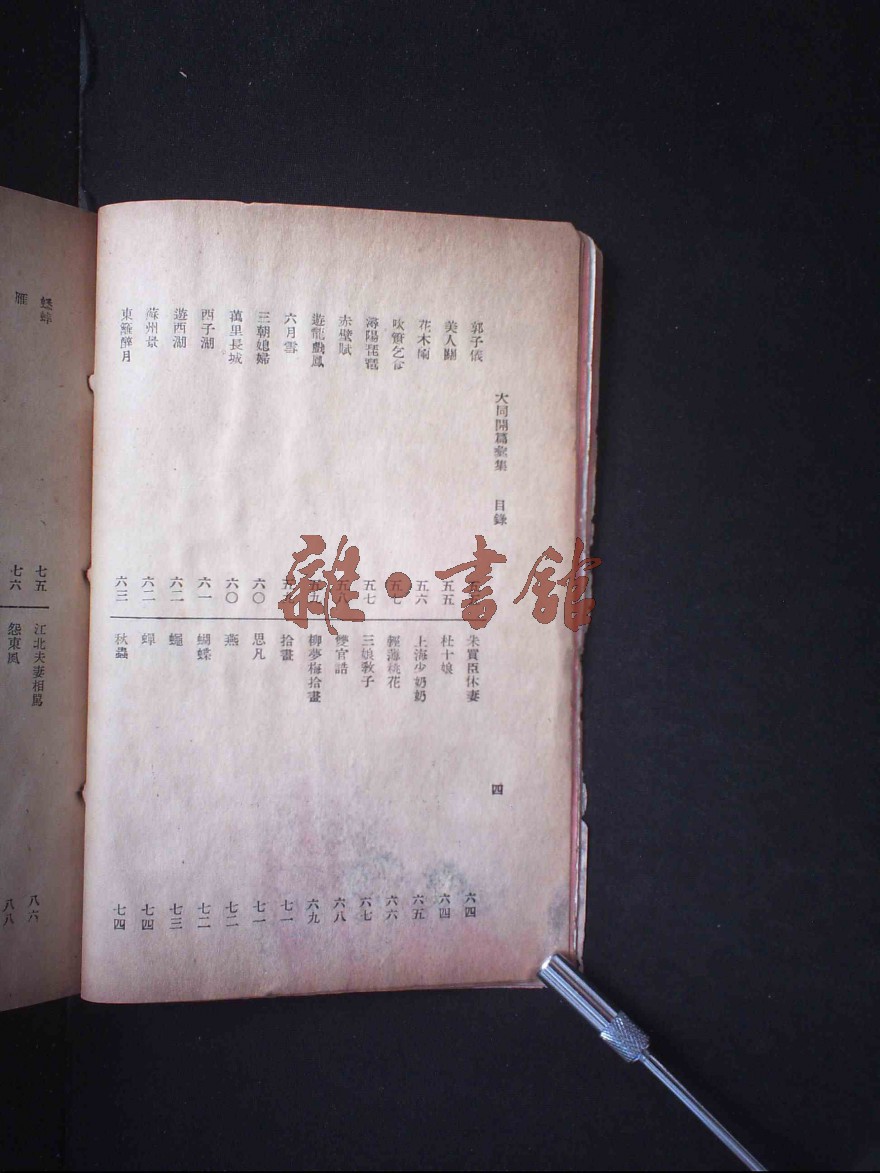 大同開篇彙集 目錄 四
郭子儀
美人關 五五
花木蘭 五六
吹簫乞食 五七
潯陽琵琶 五七
赤壁賦 五八
遊龍戲鳳 五九
六月雪 五九
三朝媳婦 六〇
萬里長城 六〇
西子湖 六一
遊西湖 六二
蘇州景 六二
東籬醉月 六三
朱買臣休妻 六四
杜十娘 六四
上海少奶奶 六五
輕薄桃花 六六
三娘敎子 六七
雙官誥 六八
柳夢梅拾畫 六九
拾畫 七一
思凡 七一
燕 七二
蝴蝶 七二
蠅 七三
蟬 七四
秋蟲 七四
蟋蟀 七五
雁 七六
江北夫妻相罵 八六
怨東風 八八
雜·書館